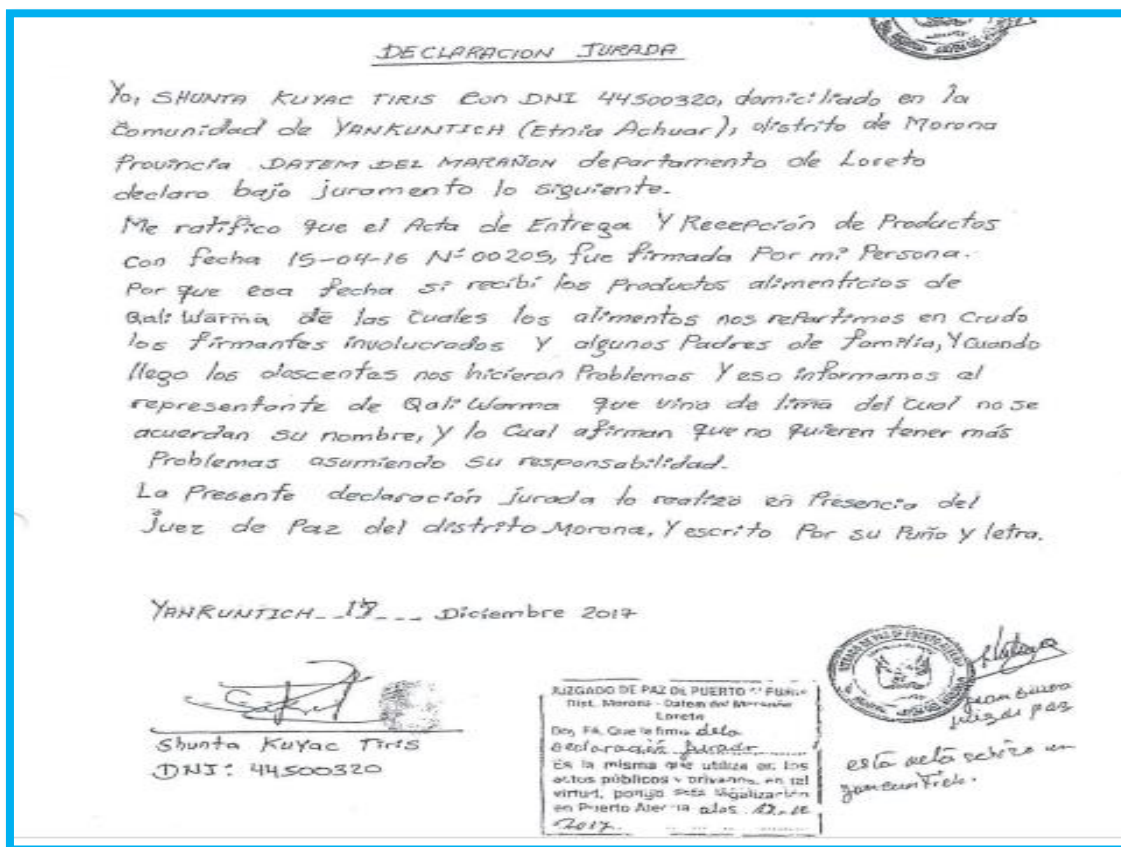 DECLARACION JURADA
Yo, SHUNTA KUYAC TIRIS con DNI 44500320, domiciliado en la
Comunidad de YANKUNTICH (Etnia Achuar), distrito de Morona
Provincia DATEM DEL MARAÑON departamento de Loreto
declaro bajo juramento lo siguiente.
Me ratifico que el Acta de Entrega Y Recepción de Productos
con fecha 15-04-16 Nº 00205, fue firmada Por mi Persona.
Por que esa fecha si recibí los Productos alimenticios de
Qali Warma de las Cuales los alimentos nos repartimos en Crudo
los firmantes involucrados Y algunos Padres de familia, Y Cuando
llego los doscentes nos hicieron Problemas Y eso informamos al
representante de Qali Warma que vino de lima del Cual no se
acuerdan su nombre, Y lo Cual afirman que no quieren tener más
Problemas asumiendo su responsabilidad.
La Presente declaración jurada lo realizo en Presencia del
Juez de Paz del distrito Morona, Y escrito Por su Puño y letra.
YANKUNTICH Diciembre 2017
Shunta Kuyac Tiris
DNI: 44500320
JUZGADO DE PAZ DE PUERTO
Dist. Morona - Datem del Marañon
Loreto
Doy Fé, Que la firma de la
declaración Jurada
Es la misma que utiliza en los
actos públicos y privados, en tal
virtud, pongo esta legalización
en Puerto a los
2017.
juez de paz
esta acta se hizo en